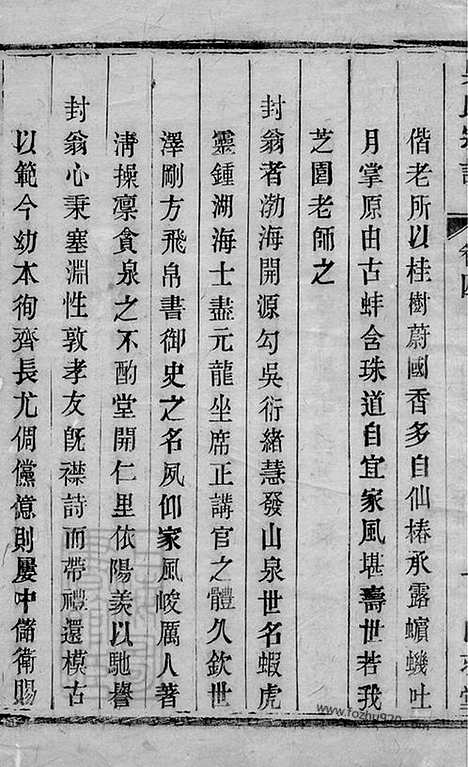 偕老所以桂樹蔚國香多自仙椿承露蠙蟣吐
月掌原由古蚌含珠道自宜家風堪壽世若我
芝園老師之
封翁者渤海開源勾吳衍緒慧發山泉世名蝦虎
靈鍾湖海士盡元龍坐席正講官之體久欽世
澤剛方飛帛書御史之名夙仰家風峻厲人著
淸操凛貪泉之不酌堂開仁里依陽羨以馳譽
封翁心秉塞淵性敦孝友旣襟詩而帶禮還模古
以範今幼本徇齊長尤倜儻億則屢中儲衛賜
www.fozhu920.com